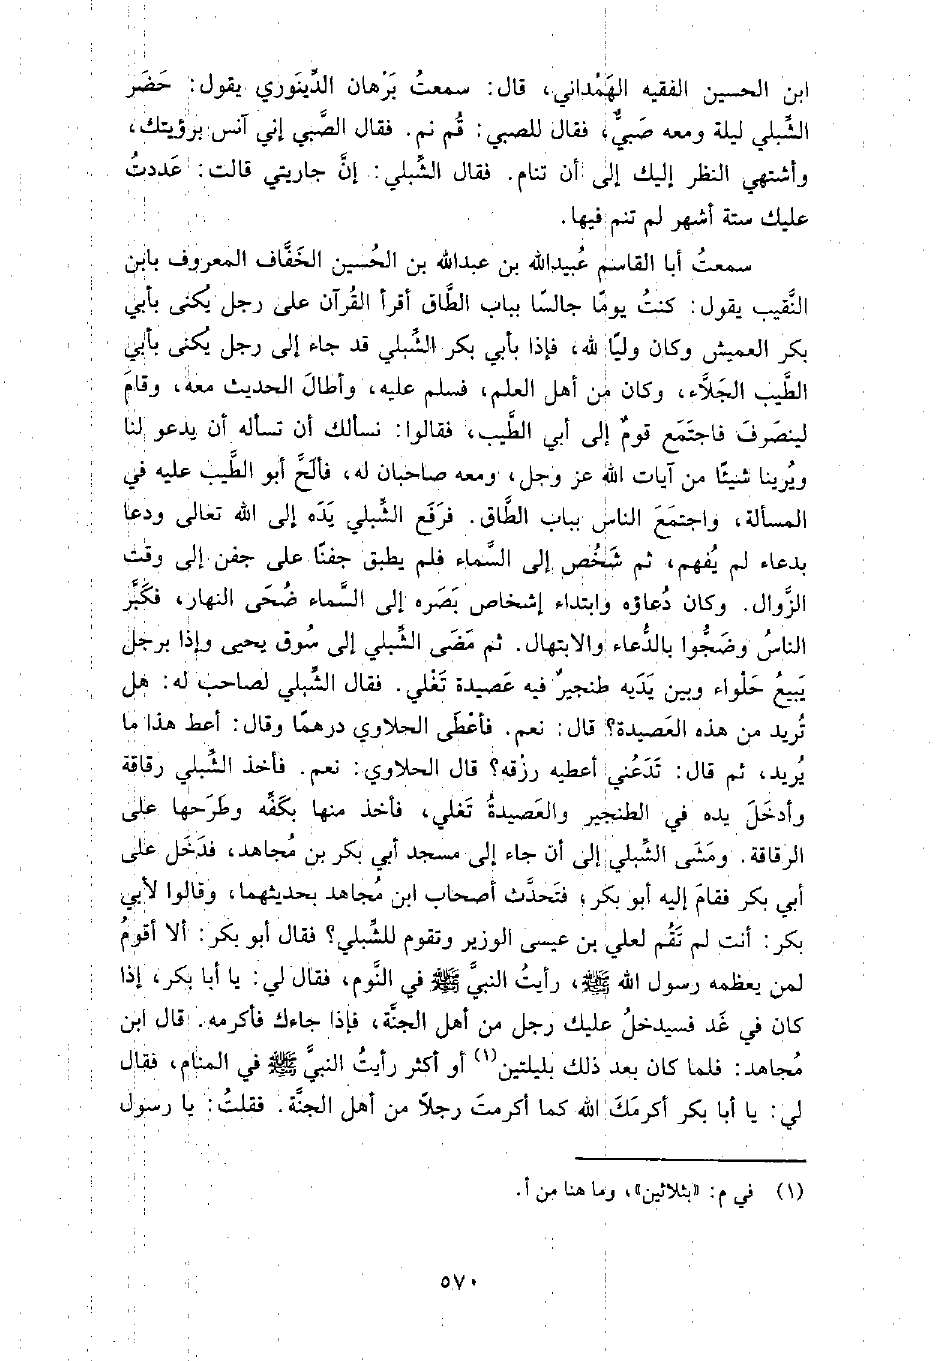 ابن الحسين الفقيه الهَمْداني، قال: سمعتُ بَرْهان الدِّينَوري يقول: حَضَر
الشِّبلي ليلة ومعه صَبيٌّ، فقال للصبي: قُم نم. فقال الصَّبي إني آنس برؤيتك،
وأشتهي النظر إليك إلى أن تنام. فقال الشِّبلي: إنَّ جاريتي قالت: عَددتُ
عليك ستة أشهر لم تنم فيها.
سمعتُ أبا القاسم عُبيدالله بن عبدالله بن الحُسين الخَفَّاف المعروف بابن
النَّقيب يقول: كنتُ يومًا جالسًا بباب الطَّاق أقرأ القُرآن على رجل يُكنى بأبي
بكر العميش وكان وليًا لله، فإذا بأبي بكر الشِّبلي قد جاء إلى رجل يُكنى بأبي
الطَّيب الجَلَّاء، وكان من أهل العلم، فسلم عليه، وأطالَ الحديث معه، وقامَ
لينصَرفَ فاجتَمَع قومٌ إلى أبي الطَّيب، فقالوا: نسألك أن تسأله أن يدعو لنا
ويُرينا شيئًا من آيات الله عز وجل، ومعه صاحبان له، فألَحَّ أبو الطَّيب عليه في
المسألة، واجتمَعَ الناس بباب الطَّاق. فرَفَع الشِّبلي يَدَه إلى الله تعالى ودعا
بدعاء لم يُفهم، ثم شَخُص إلى السَّماء فلم يطبق جفنًا على جفن إلى وقت
الزَّوال. وكان دُعاؤه وابتداء إشخاص بَصَره إلى السَّماء ضُحَى النهار، فكَبَّر
الناسُ وضَجُّوا بالدُّعاء والابتهال. ثم مَضَى الشِّبلي إلى سُوق يحيى وإذا برجل
يَبيعُ حَلْواء وبين يَدَيه طنجيرٌ فيه عَصيدة تَغْلي. فقال الشِّبلي لصاحب له: هل
تُريد من هذه العَصيدة؟ قال: نعم. فأعْطَى الحلاوي درهمًا وقال: أعط هذا ما
يُريد، ثم قال: تَدَعُني أعطيه رزْقه؟ قال الحلاوي: نعم. فأخذ الشِّبلي رقاقة
وأدخَلَ يده في الطنجير والعَصيدةُ تَغلي، فأخذ منها بكَفِّه وطَرَحها على
الرقاقة. ومَشَى الشِّبلي إلى أن جاء إلى مسجد أبي بكر بن مُجاهد، فدَخَل على
أبي بكر فقامَ إليه أبو بكر؛ فتَحدَّث أصحاب ابن مُجاهد بحديثهما، وقالوا لأبي
بكر: أنت لم تَقُم لعلي بن عيسى الوزير وتقوم للشِّبلي؟ فقال أبو بكر: ألا أقومُ
لمن يعظمه رسول الله ﷺ، رأيتُ النبيَّ ﷺ في النَّوم، فقال لي: يا أبا بكر، إذا
كان في غَد فسيدخلُ عليك رجل من أهل الجنَّة، فإذا جاءك فأكرمه. قال ابن
مُجاهد: فلما كان بعد ذلك بليلتين(١) أو أكثر رأيتُ النبيَّ ﷺ في المنام، فقال
لي: يا أبا بكر أكرمَكَ الله كما أكرمتَ رجلاً من أهل الجنَّة. فقلتُ: يا رسول
(١) في م: «بثلاثين»، وما هنا من أ.
٥٧٠